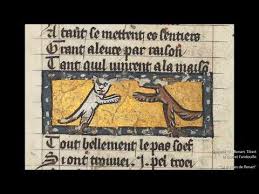 A tāt se mettent es sentiers
Grant aleure par raison
Tant quil vinrent a la maisō
Tout bellement le pas soef
Si ont trouue
Renart, Tibert
et l'andouille
de Renart"